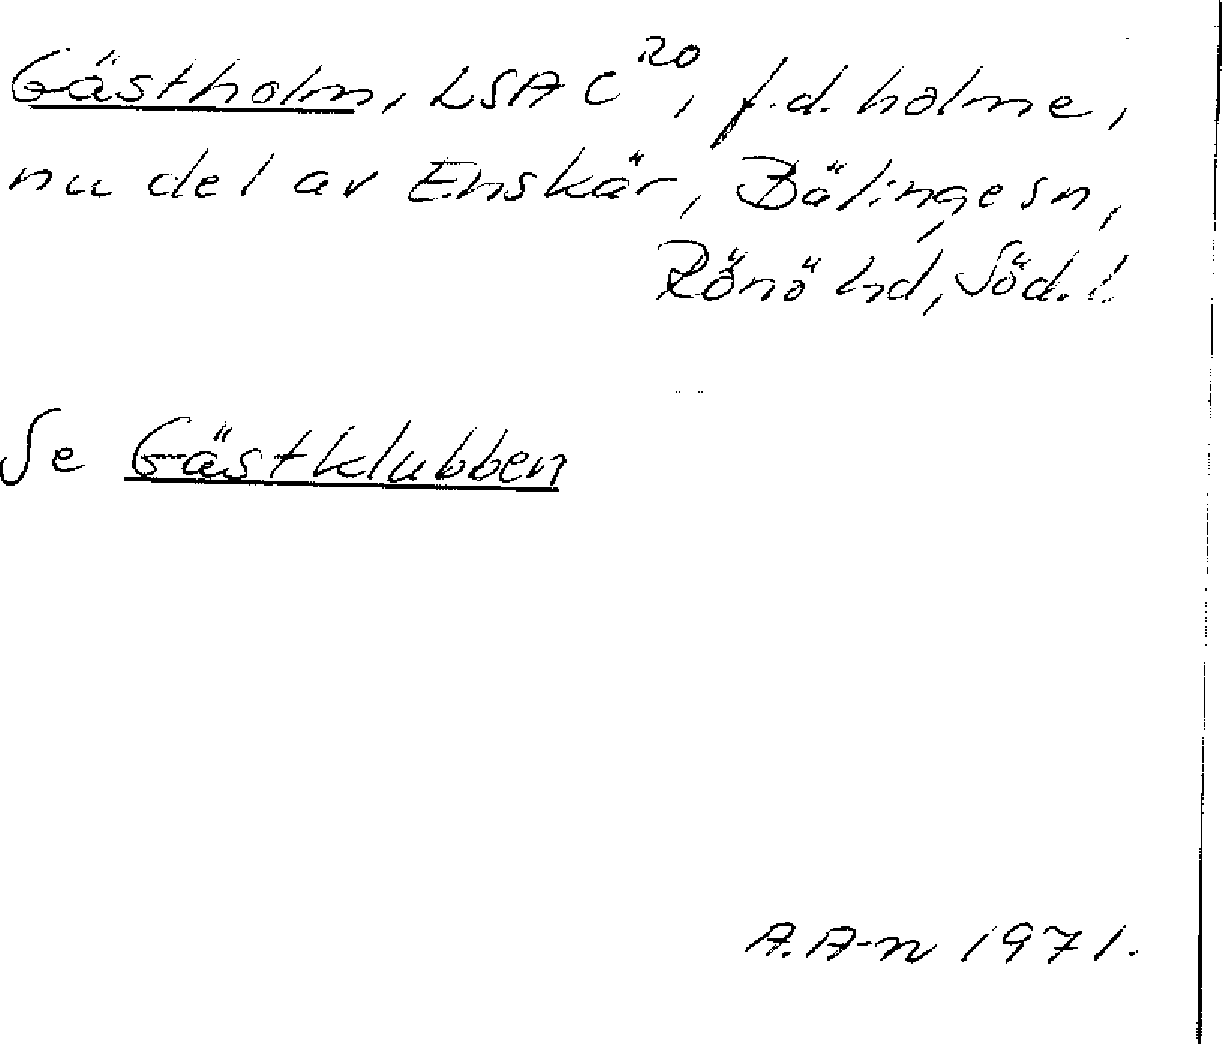 Gästholm, LSA C²⁰, f.d. holme,
nu del av Enskär, Bälinge sn,
Rönö hd, Söd.l.
Se Gästklubben
A. A-n 1971.